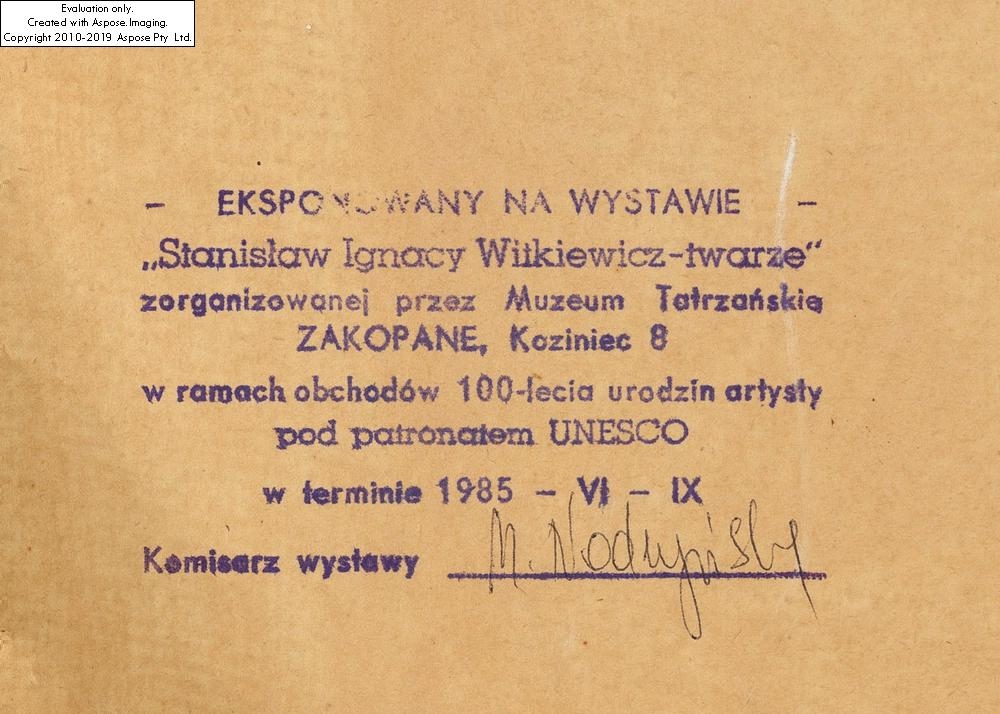 Evaluation only.
Created with Aspose.Imaging.
Copyright 2010-2019 Aspose Pty Ltd.
- EKSPONOWANY NA WYSTAWIE -
„Stanisław Ignacy Witkiewicz-twarze“
zorganizowanej przez Muzeum Tatrzańskie
ZAKOPANE, Koziniec 8
w ramach obchodów 100-lecia urodzin artysty
pod patronatem UNESCO
w terminie 1985 - VI - IX
Komisarz wystawy M.